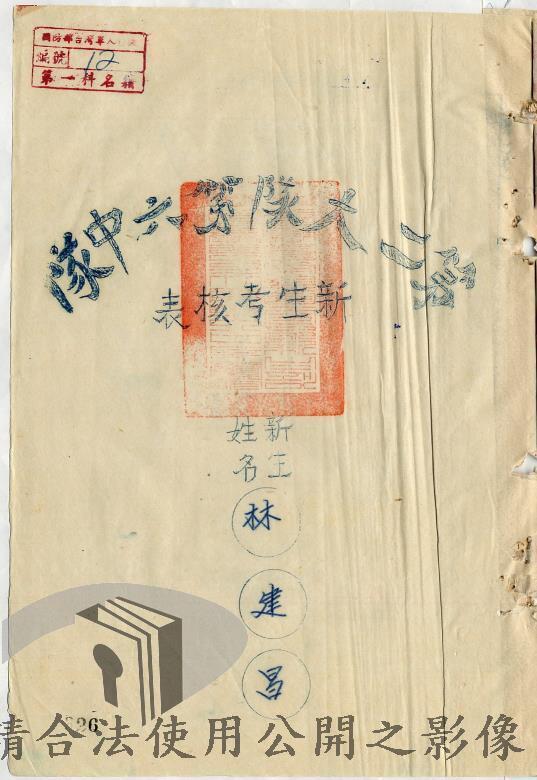 國防部台灣軍人
編號 12
第一科名籍
第二大隊第六中隊
新生考核表
新生
姓名
林
建
昌
26
請合法使用公開之影像